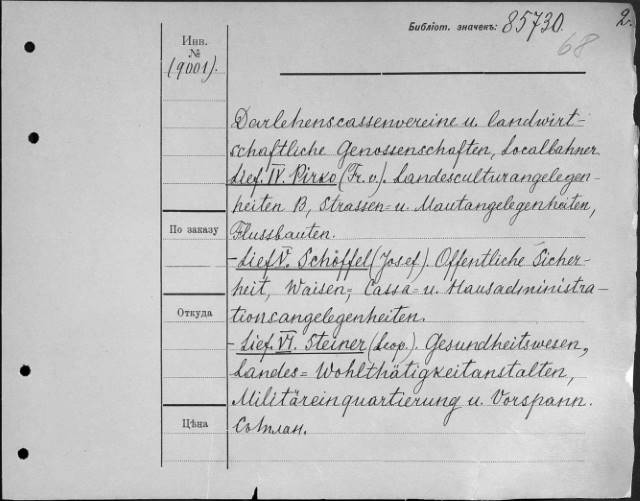 Библіот. значекъ: 85730. 2.
68
Инв.
№
(9001).
Darlehenscassenvereine u. landwirt-
schaftliche Genossenschaften, Localbahnen
Lief. IV. Pirko (Fr. v.). Landesculturangelegen-
heiten B, Strassen= u. Mautangelegenheiten,
По заказу
Flussbauten.
- Lief. V. Schöffel (Josef). Öffentliche Sicher-
heit, Waisen=, Cassa= u. Hausadministra-
Откуда
tionsangelegenheiten.
- Lief. VI. Steiner (Leop.). Gesundheitswesen,
Landes= Wohlthätigkeitanstalten,
Militäreinquartierung u. Vorspann.
Цѣна
Съ план.